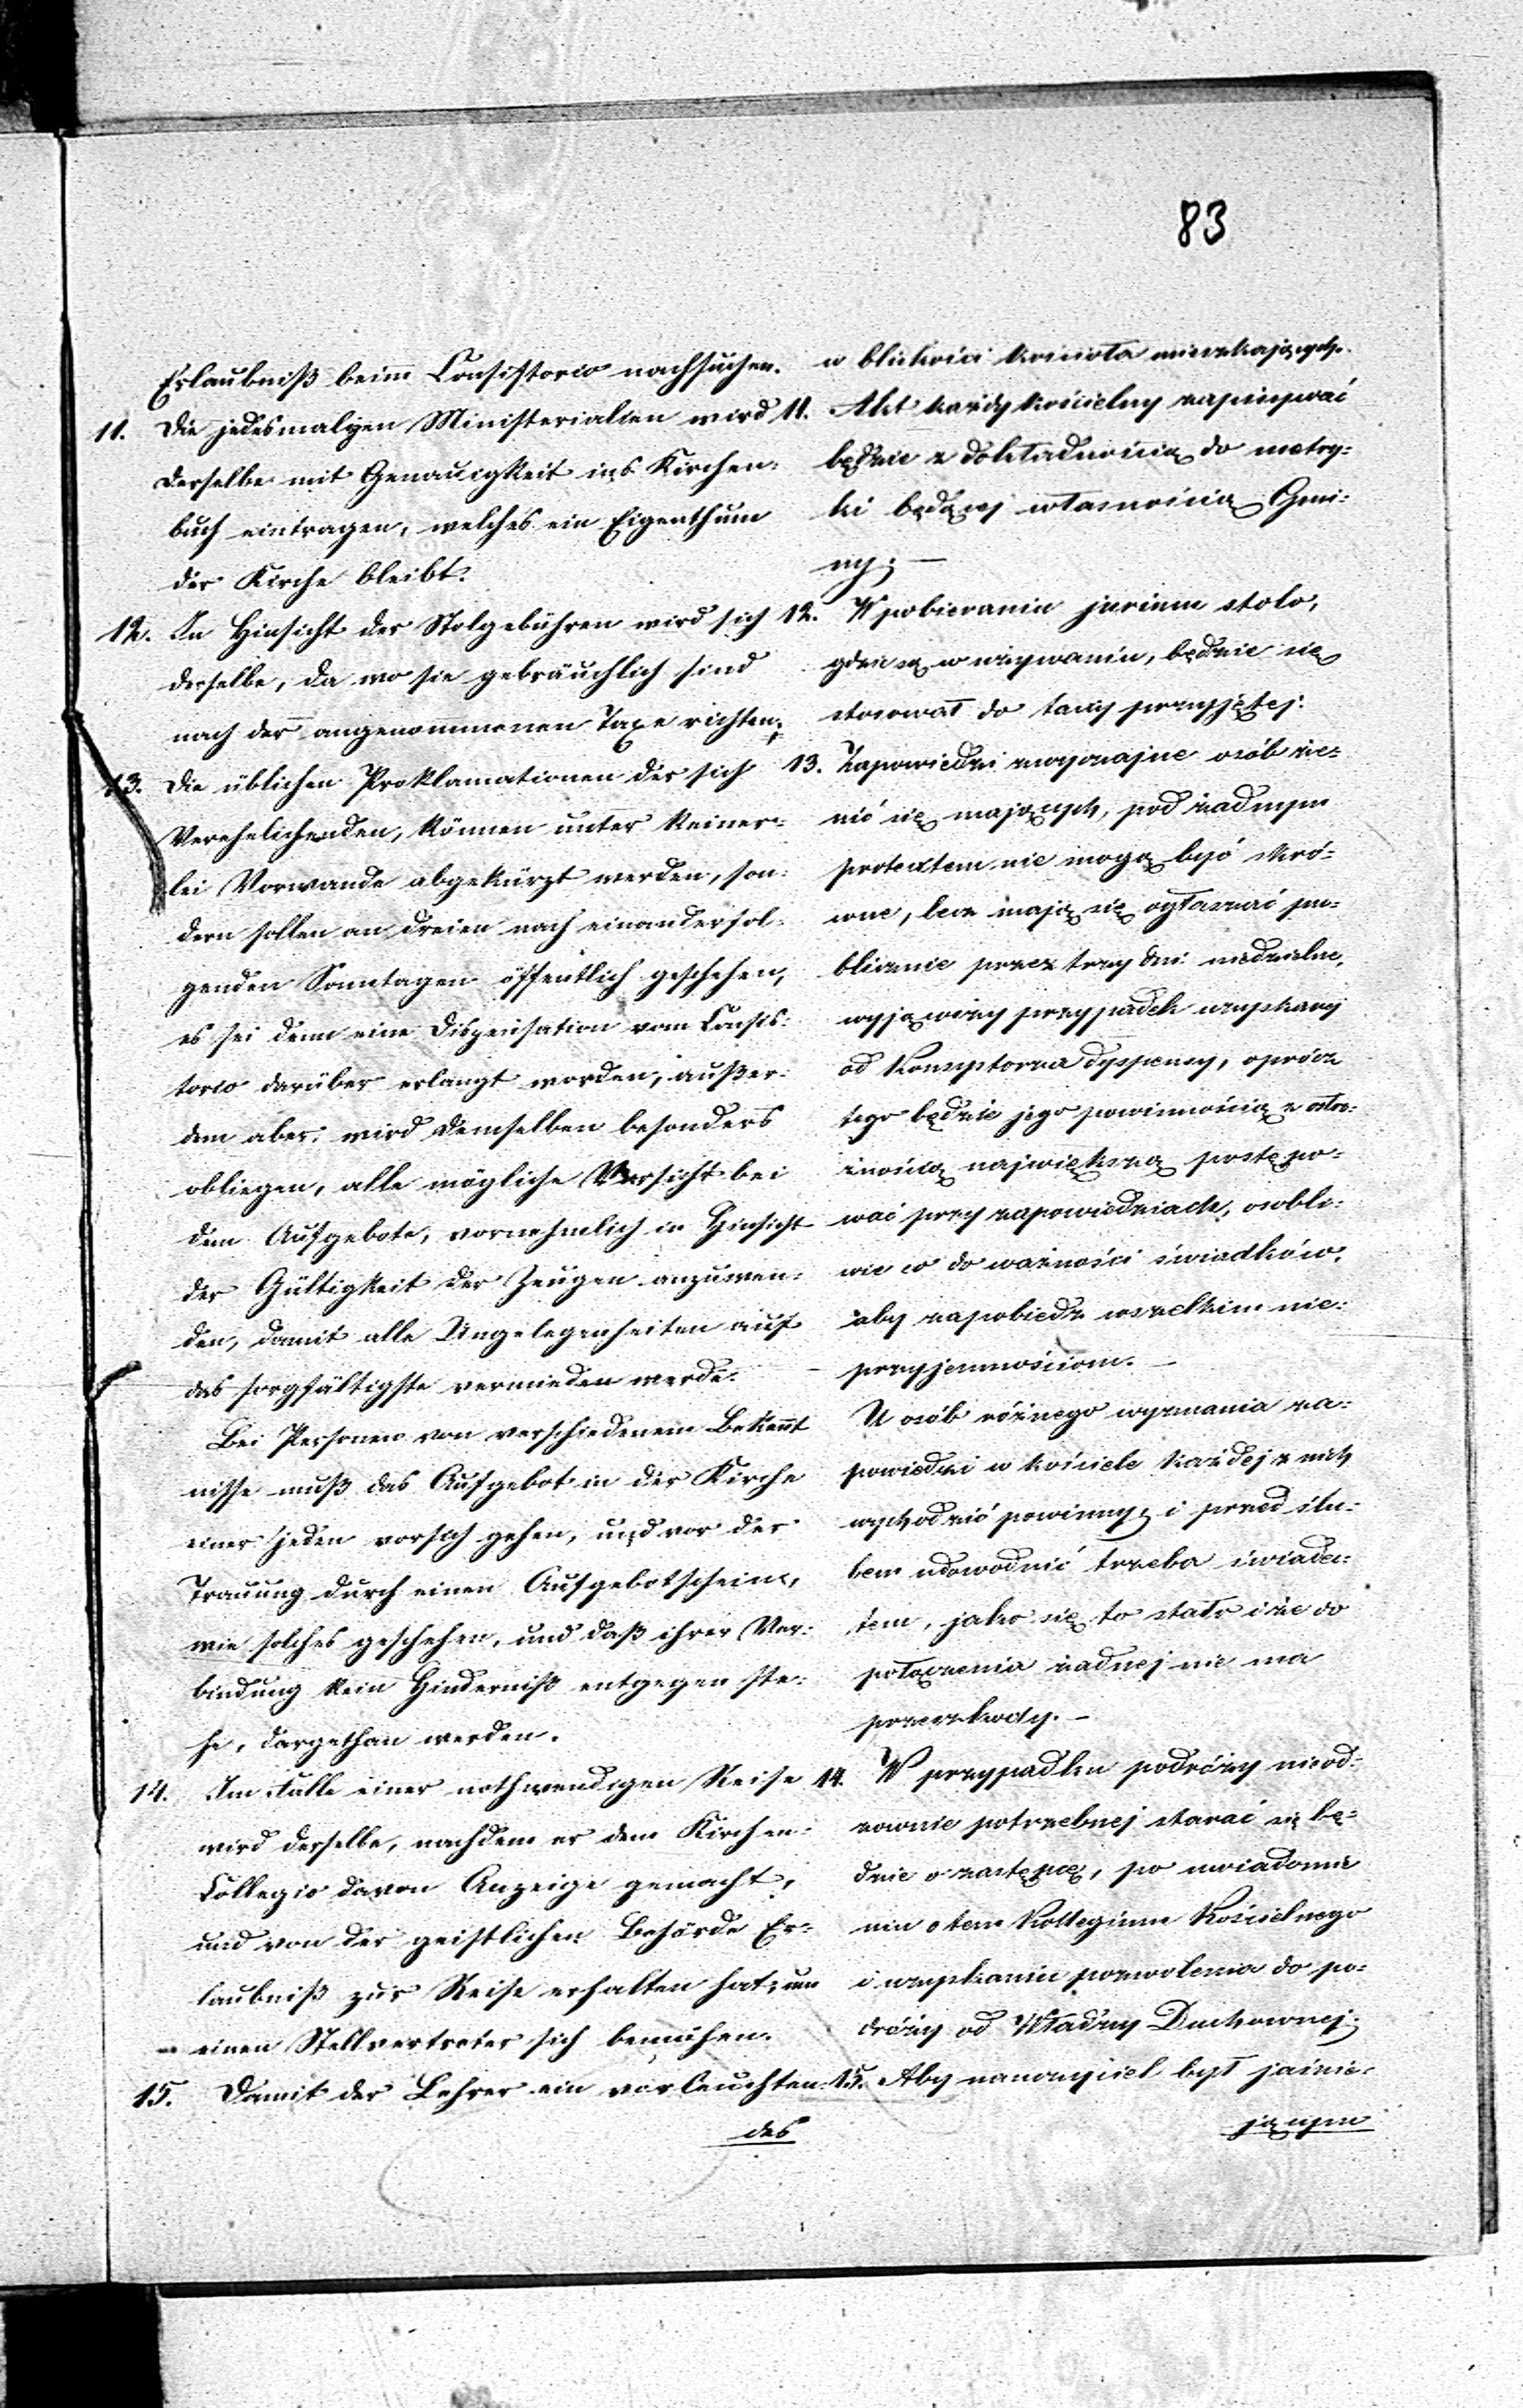 83
Erlaubniß beim Consistorio nachsuchen.
11. Die jedesmaligen Ministerialien wird
derselbe mit Genauigkeit ins Kirchen=
buch eintragen, welches ein Eigenthum
der Kirche bleibt.
12. In Hinsicht der Stolgebühren wird sich
derselbe, da wo sie gebräuchlich sind
nach der angenommenen Taxe richten;
13. Die üblichen Proklamationen der sich
Verehelichenden, können unter keiner=
lei Vorwande abgekürzt werden, son=
dern sollen an dreien nach einanderfol=
genden Sonntagen öffentlich geschehen,
es sei denn eine Dispensation vom Consis=
torio darüber erlangt worden, außer=
dem aber, wird demselben besonders
obliegen, alle mögliche Vorsicht bei
dem Aufgebote, vornehmlich in Hinsicht
der Gültigkeit der Zeugen anzuwen=
den, damit alle Ungelegenheiten auf
das sorgfältigste vermieden werde.
Bei Personen von verschiedenem Bekennt
nisse muß das Aufgebot in der Kirche
einer jeden vorsich gehen, und vor der
Trauung durch einen Aufgebotschein,
wie solches geschehen, und daß ihrer Ver=
bindung kein Hinderniß entgegen ste=
he, dargethan werden.
14. Im Falle einer nothwendigen Reise
wird derselbe, nachdem er dem Kirchen=
Collegio davon Anzeige gemacht,
und von der geistlichen Behörde Er=
laubniß zur Reise erhalten hat, um
einen Stellvertreter sich bemühen.
15. Damit der Lehrer ein vorleuchten=
des
w bliskości kościoła mieszkających.
11. Akt każdy kościelny zapisywać
będzie z dokładnością do metry=
ki będącej własnością Gmi=
ny; —
12. W pobieraniu jurium stolo,
gdzie są w używaniu, będzie się
stosował do taxy przyjętej.
13. Zapowiedzi zwyczajne osób że=
nić się mających, pod żadnym
pretextem nie mogą być skró=
cone, lecz mają się ogłaszać pu=
blicznie przez trzy dni niedzielne,
wyjąwszy przypadek uzyskanej
od Konsystorza dyspensy, oprócz
tego będzie jego powinnością z ostro=
żnością największą postępo=
wać przy zapowiedziach, osobli=
wie co do ważności świadków,
aby zapobiedz wszelkim nie=
przyjemnościom. —
U osób różnego wyznania za=
powiedzi w kościele każdej z nich
wychodzić powinny, i przed ślu=
bem udowodnić trzeba świadec=
tem, jako się to stało i że do
połączenia żadnej nie ma
przeszkody. —
14. W przypadku podróży nieod=
zownie potrzebnej starać się bę=
dzie o zastępcę, po uwiadomie
niu o tem Kollegium Kościelnego
i uzyskaniu pozwolenia do po=
dróży od Władzy Duchownej.
15. Aby nauczyciel był jaśnie=
jącym